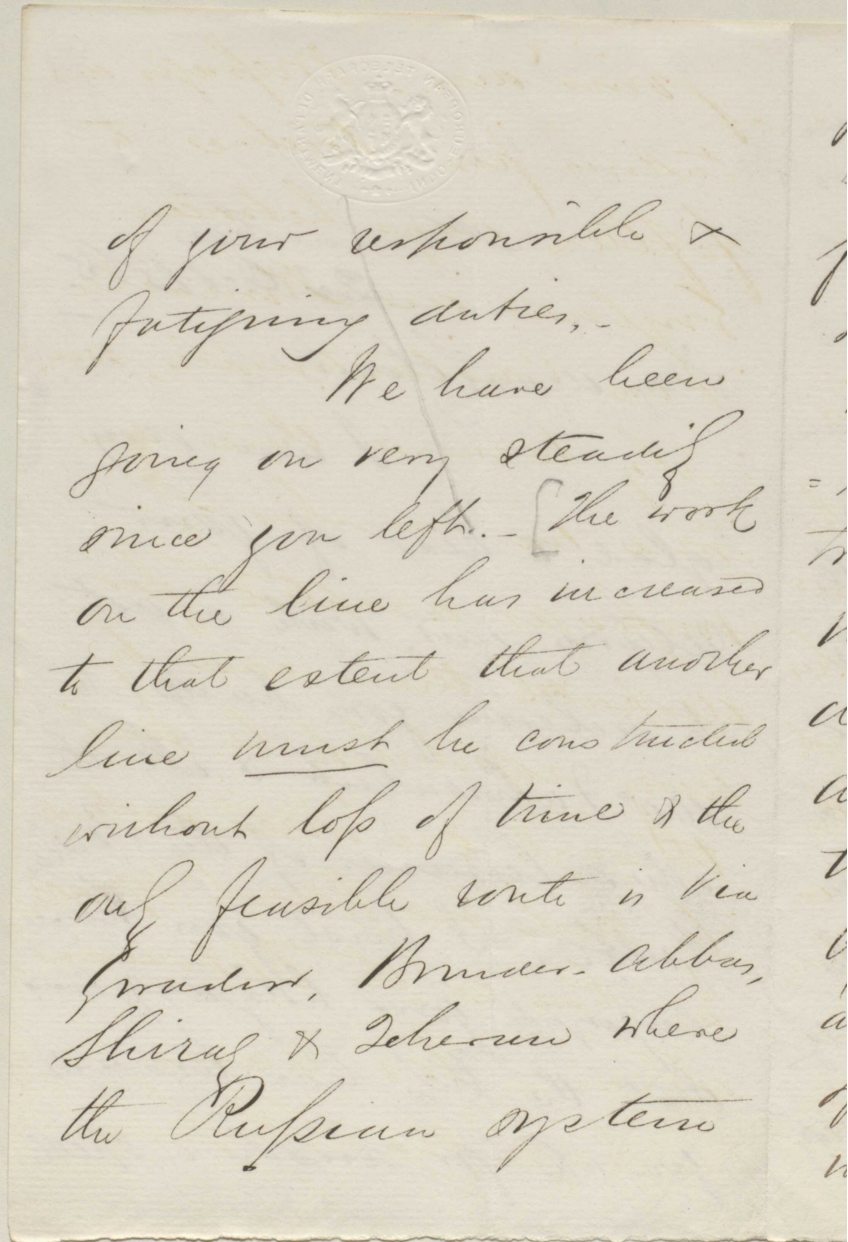 of your responsible &
fatiguing duties.-
We have been
going on very steadily
since you left.- [The work
on the line has increased
to that extent that another
line must be constructed
without loss of time & the
only feasible route is via
Gwadur, Bunder-Abbas,
Shiraz & Teheran where
the Russian system